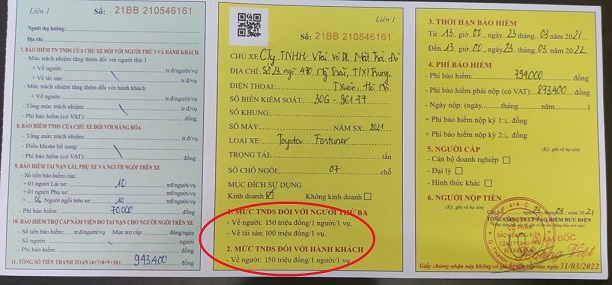 Liên 1
Số: 21BB 210546161
Người thụ hưởng:
Địa chỉ:
7. BẢO HIỂM TN TNDS CỦA CHỦ XE ĐỐI VỚI NGƯỜI THỨ 3 VÀ HÀNH KHÁCH
- Mức trách nhiệm tăng thêm đối với người thứ 3
+ Về người: trđ/người/vụ
+ Về tài sản: trđ/vụ
- Mức trách nhiệm tăng thêm đối với hành khách
+ Về người: trđ/người/vụ
- Tổng mức trách nhiệm: trđ/vụ
- Phí bảo hiểm (có VAT): đồng
8. BẢO HIỂM TNDS CỦA CHỦ XE ĐỐI VỚI HÀNG HÓA
- Tổng mức trách nhiệm: trđ/vụ
- Điều khoản bổ sung:
- Phí bảo hiểm (có VAT): đồng
9. BẢO HIỂM TAI NẠN LÁI, PHỤ XE VÀ NGƯỜI NGỒI TRÊN XE
- Số tiền bảo hiểm của
+ 01 người Lái xe: 10 trđ/người/vụ
+ 01 người Phụ xe: trđ/người/vụ
+ 06 Người ngồi trên xe: 10 trđ/người/vụ
- Phí bảo hiểm: 70.000 đồng
10. BẢO HIỂM TRỢ CẤP NẰM VIỆN DO TAI NẠN CHO NGƯỜI NGỒI TRÊN XE
- Số tiền bảo hiểm: trđ/người/vụ Mức trợ cấp: đồng/ngày
- Số người: người
- Phí bảo hiểm: đồng
11. TỔNG SỐ TIỀN THANH TOÁN (4+7+8+9+10): 943.400 đồng
Liên 1
Số: 21BB 210546161
CHỦ XE: Cty TNHH
ĐỊA CHỈ: Số 23 ngõ 470
ĐIỆN THOẠI:
SỐ BIỂN KIỂM SOÁT:
SỐ KHUNG:
SỐ MÁY: NĂM SX: 2021
LOẠI XE: Toyota Fortuner
TRỌNG TẢI: tấn
SỐ CHỖ NGỒI: 07 chỗ
MỤC ĐÍCH SỬ DỤNG
Kinh doanh Không kinh doanh
1. MỨC TNDS ĐỐI VỚI NGƯỜI THỨ BA
- Về người: 150 triệu đồng/1 người/1 vụ.
- Về tài sản: 100 triệu đồng/1 vụ.
2. MỨC TNDS ĐỐI VỚI HÀNH KHÁCH
- Về người: 150 triệu đồng/1 người/1 vụ.
3. THỜI HẠN BẢO HIỂM
Từ 13 giờ 00, ngày 23 tháng 03 /2021
Đến 13 giờ 00, ngày 23 tháng 03 /2022
4. PHÍ BẢO HIỂM
- Phí bảo hiểm: 794000 đồng
- Phí bảo hiểm phải nộp (có VAT): 873,400 đồng
- Ngày nộp: (ngày/ tháng/ năm)
+ Phí bảo hiểm nộp kỳ 1: đồng
+ Phí bảo hiểm nộp kỳ 2: đồng
5. NGƯỜI CẤP (Ký, ghi rõ họ tên)
- Cán bộ doanh nghiệp
- Đại lý
- Hình thức khác
6. NGƯỜI NỘP TIỀN (Ký, ghi rõ họ tên)
TỔNG CÔNG TY CP BẢO HIỂM BƯU ĐIỆN
GIÁM ĐỐC
31/03/2022